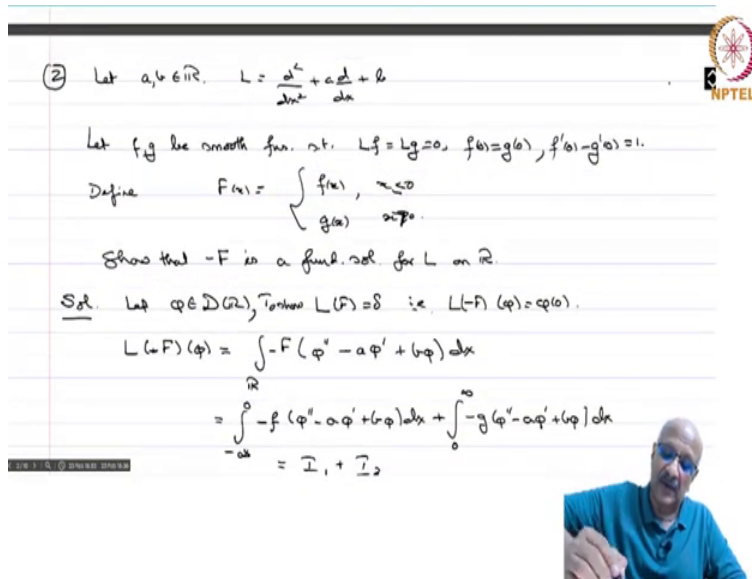 ② Let a,b ∈ ℝ. L = d²/dx² + a d/dx + b
NPTEL
Let f,g be smooth fns. s.t. Lf = Lg = 0, f(0) = g(0), f'(0) - g'(0) = 1.
Define F(x) = { f(x), x ≤ 0
g(x) x > 0.
Show that -F is a fund. sol. for L on ℝ.
Sol. Let φ ∈ D(ℝ), To show L(F) = δ i.e. L(-F)(φ) = φ(0).
L(-F)(φ) = ∫_ℝ -F(φ'' - aφ' + bφ) dx
= ∫_{-∞}^0 -f(φ'' - aφ' + bφ) dx + ∫_0^∞ -g(φ'' - aφ' + bφ) dx
= I₁ + I₂